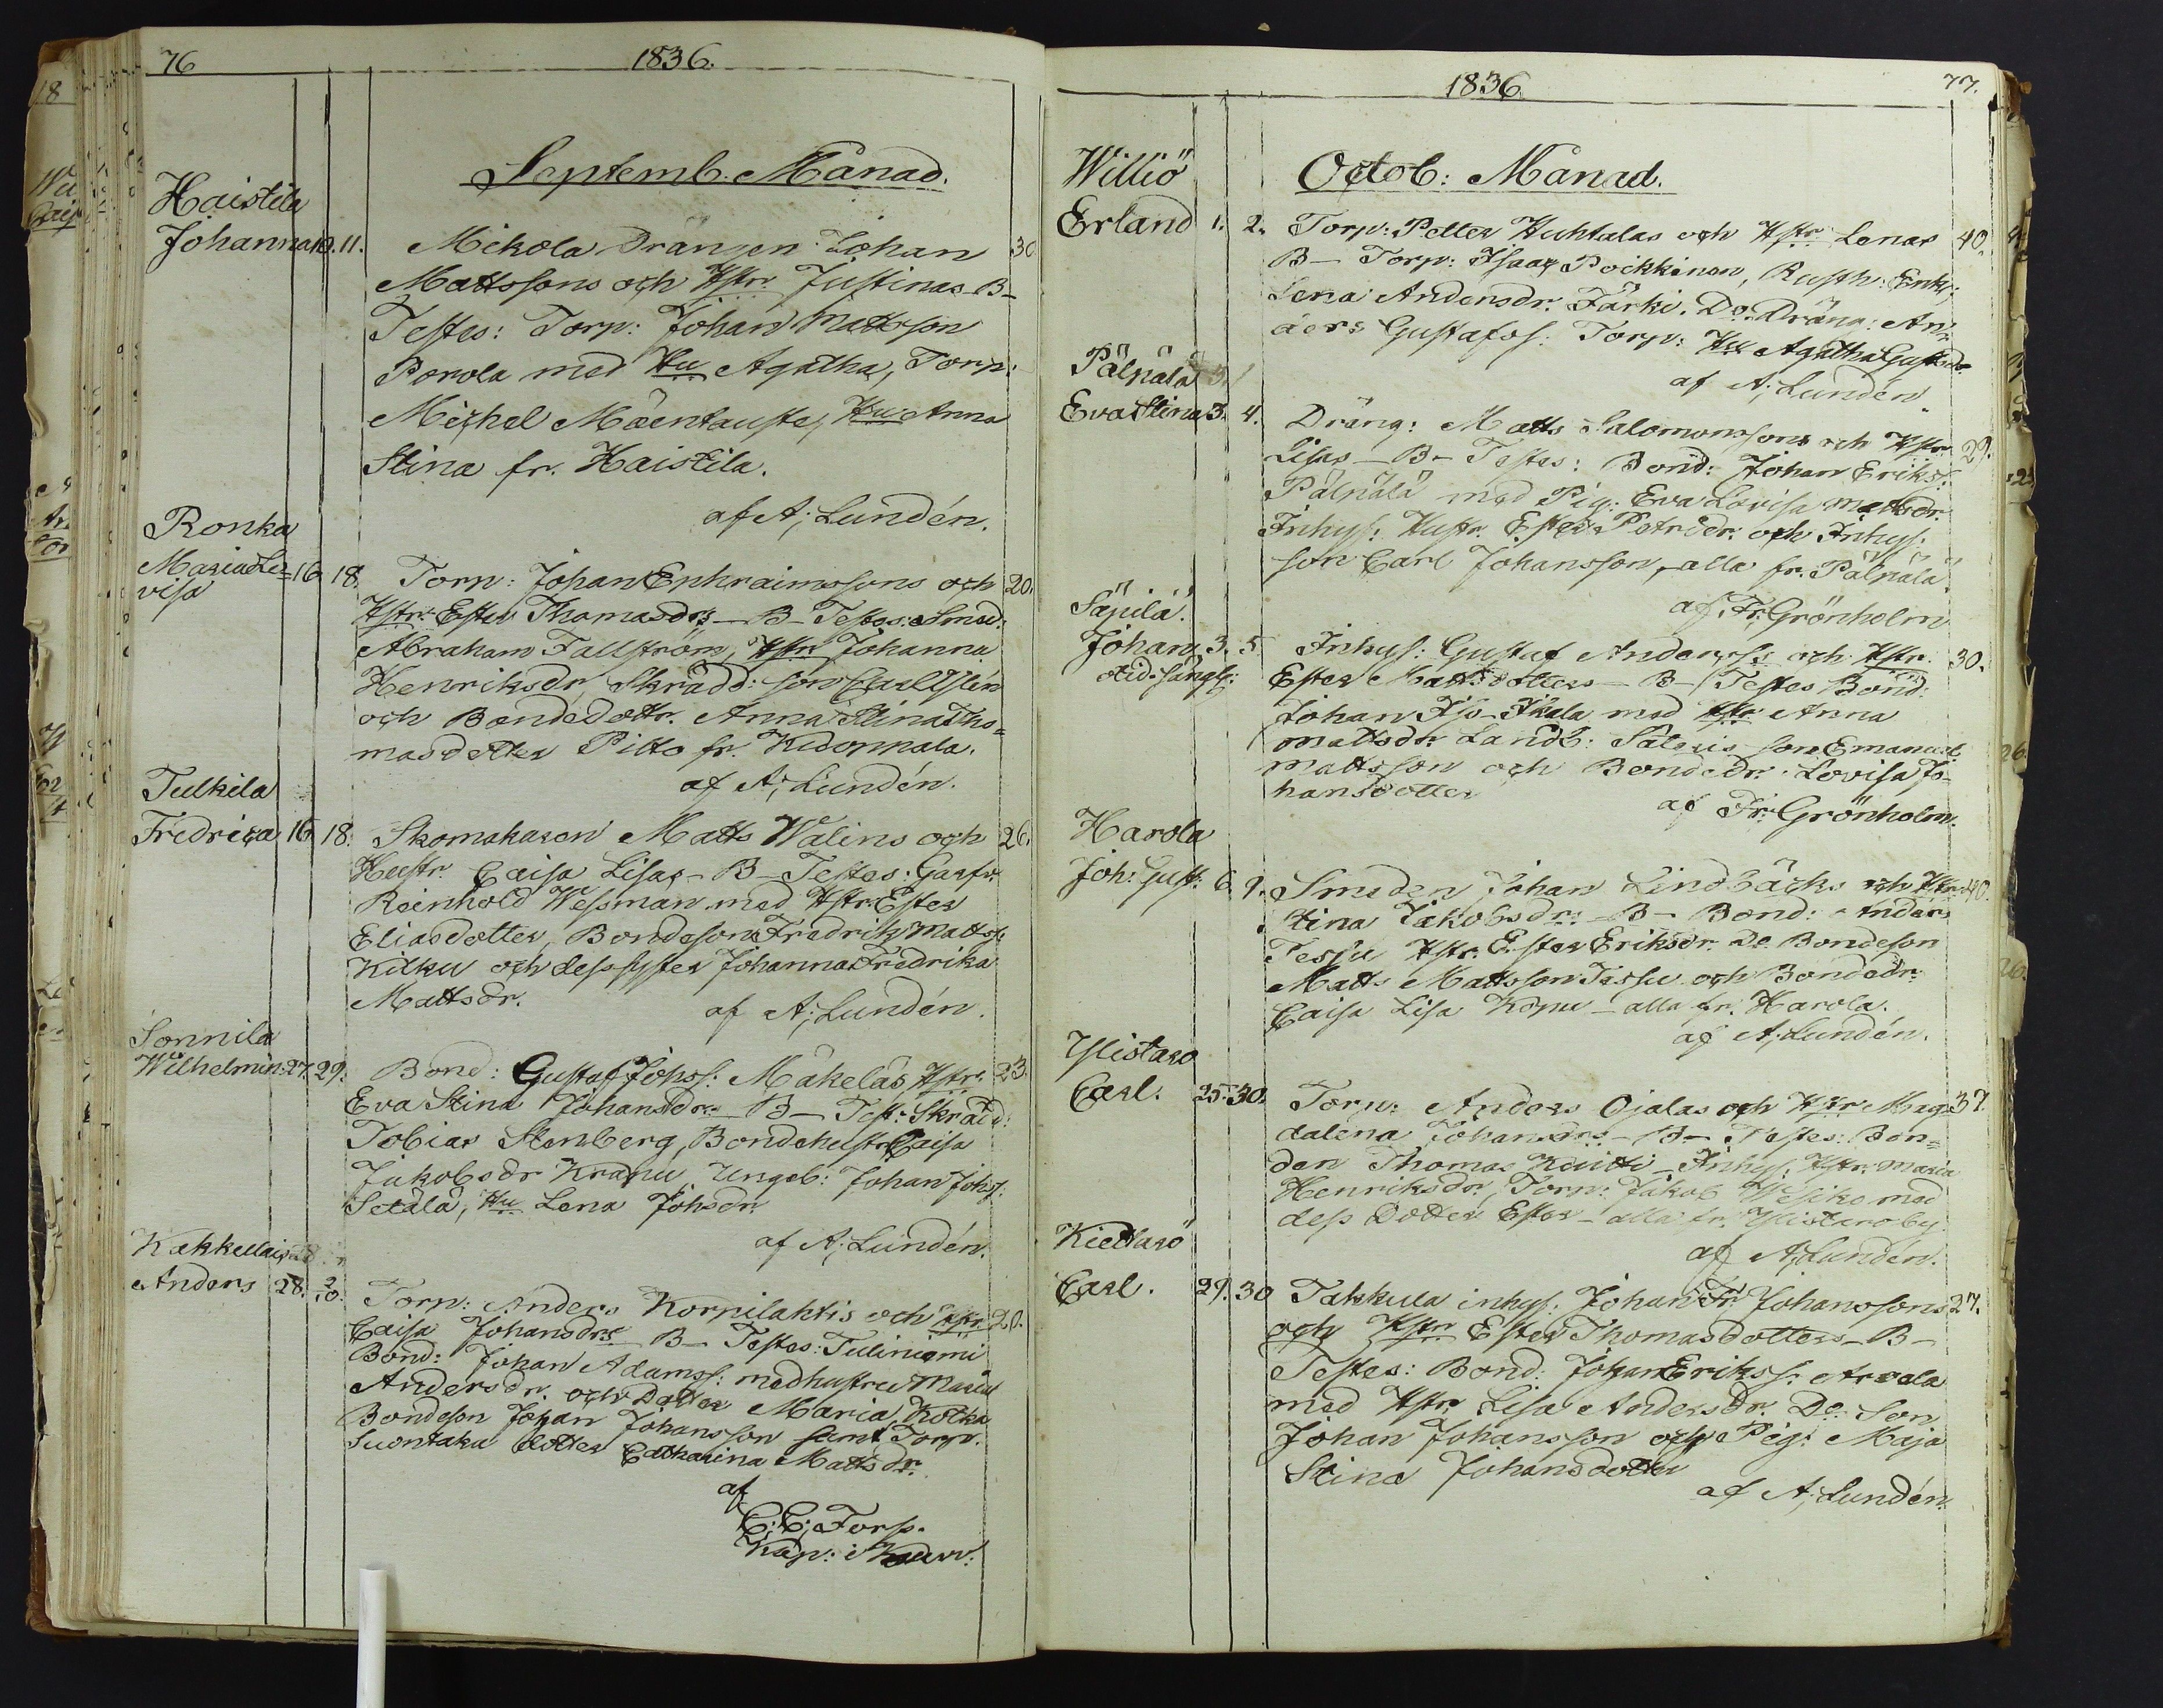 76
1836.
Septemb. Månad.
Haistila
Johanna 10. 11. Mikola Drängen Johan 30
Mattssons och Hstr Justinas B-
Testes: Torp: Johan Mattsson
Porola med Hu Agatha, Torp:
Michel Mäentausta, Hu Anna
Stina fr. Haistila.
af A; Lundén.
Ronka
Maria Lo= 16 18. Torp: Johan Ephraimssons och 20.
visa
Hstr: Ester Thomasdrs - B - Testes: Smed:
Abraham Fallström, Hstr Johanna
Henriksdr, Skrädd: son Carl
och Bondedottr. Anna Stina Tho=
masdotter Pitto fr.
af A; Lundén.
Tulkila
Fredrica 16 18. Skomakaren Matts Walins och 26.
Hustr. Caisa Lisas - B - Testes: Garfv.
Reinhold Wessman med Hstr. Ester
Eliasdotter, Bondeson Fredrik Mattss:
Kilku och dess syster Johanna Fredrika
Mattsdr.
af A; Lundén.
Sonnila
Wilhelmin: 27. 29. Bond: Gustaf Johss: Mäkeläs, Hstr. 23.
Eva Stina Johansdrs - B - Test: Skrädd:
Tobias Stenberg, Bondehustr Caisa
Jakobsdr Krapu, Ungeb: Johan Johss:
Setälä, Hu Lena Johsdr.
af A; Lundén.
Kakkulais
Anders 28. 2/10. Torp: Anders Korpilahtis och Hstr 20.
Caisa Johansdrs B - Testes: Tuliniemi
Bond: Johan Adamss: med hustru Maria
Andersdr. och Dotter Maria, Kotka
Bondeson Johan Johansson samt Torp.
Suontaka dotter Catharina Mattsdr.
af
C; C; Forss.
Kap: i
1836
77.
Octob: Månad.
Williö
Erland 1. 2. Torp: Petter Huhtalas och Hstr Lenas 40.
B - Torp: Isaac Poikkinen, Rusth: Enk:
Lena Andersdr. Färki. Do. Dräng: An=
ders Gustafss: Torp: Hu Agatha Gustdr
af A; Lundén
Pälpälä
Eva Stina 3. 4. Dräng: Matts Salomonssons och Hstr 29.
Lisas - B - Testes: Bond: Johan Erikss:
Pälpälä med Pig: Eva Lovisa Mattsdr.
Inhys: Hustr. Ester Petrsdr. och Inhys:
son Carl Johansson, alla fr. Pälpälä
af Fr: Grönholm
Säpilä.
Johan 3. 5. Inhys: Gustaf Anderss och Hstr. 30.
Ester Mattsdotters - B - Testes Bond:
Johan Iso-Ikala med Hstr Anna
Mattsdr. Landb: son Emanuel
Mattsson och Bondedr. Lovisa Jo-
hansdotter
af Fr: Grönholm.
Harola
Joh: Gust: 6. 9. Smeden Johan Lindbäcks och Hstr 40.
Stina Jakobsdrs - B - Bond: Anders
Tessu Hstr. Ester Eriksdr. Do Bondeson
Matts Mattsson Tessu och Bondedr.
Caisa Lisa Kopu - alla fr. Harola.
af A; Lundén.
Ylistaro
Carl. 25. 30. Torp: Anders Ojalas och Hstr Mag= 37.
dalena Johansdrs - B - Testes: Bon=
den Thomas Knitti - Inhys: Hstr: Maria
Henriksdr, Torp: Jakob med
dess Dotter Ester - alla fr. Ylistaroby.
af A; Lundén.
Kiettarö
Carl. 29. 30 Takkula inhys: Johan Fr: Johanssons 27.
och Hstr Ester Thomasdotters - B -
Testes: Bond: Johan Erikss: Arvela
med Hstr Lisa Andersdr. Do Son
Johan Johansson och Pig: Maja
Stina Johansdotter
af A; Lundén.